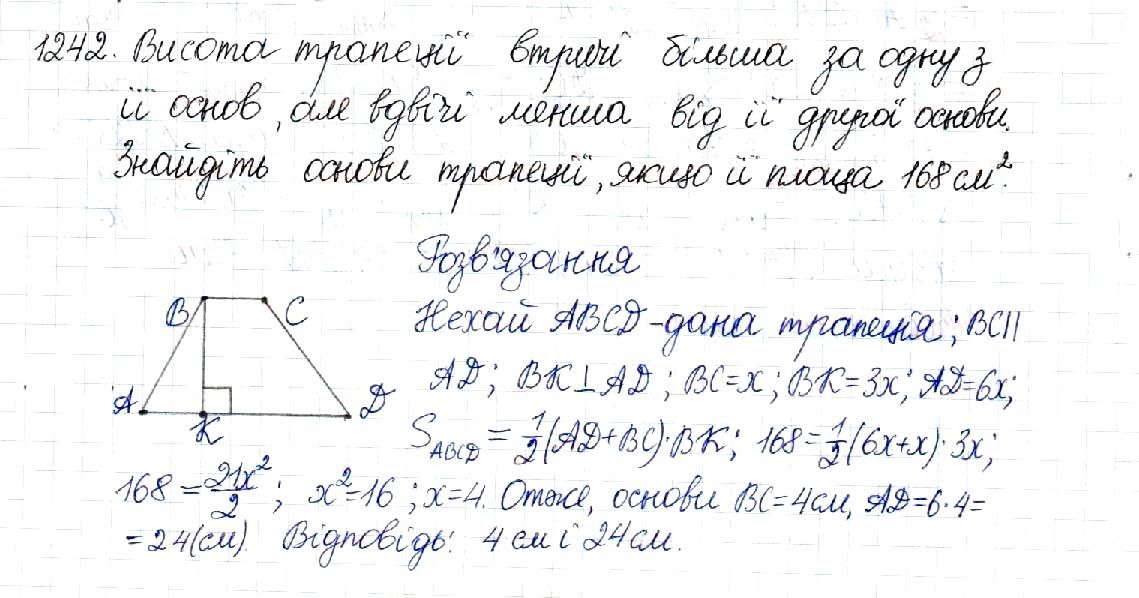 1242. Висота трапеції втричі більша за одну з
її основ, але вдвічі менша від її другої основи.
Знайдіть основи трапеції, якщо її площа 168 см².
Розв'язання
B C
Нехай ABCD - дана трапеція; BC||
A K D
AD; BK⊥AD; BC=x; BK=3x; AD=6x;
S_ABCD = 1/2(AD+BC)·BK; 168=1/2(6x+x)·3x;
168 = 21x²/2; x²=16; x=4. Отже, основи BC=4см, AD=6·4=
=24(см). Відповідь: 4 см і 24 см.